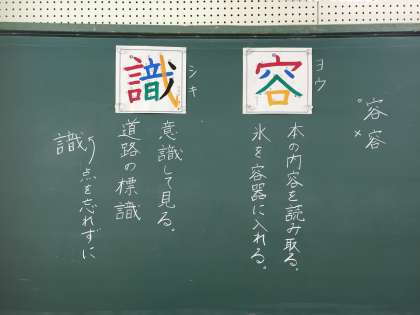 ○容
×容
容
ヨウ
本の内容を読み取る。
氷を容器に入れる。
識
シキ
意識して見る。
道路の標識
識
点を忘れずに